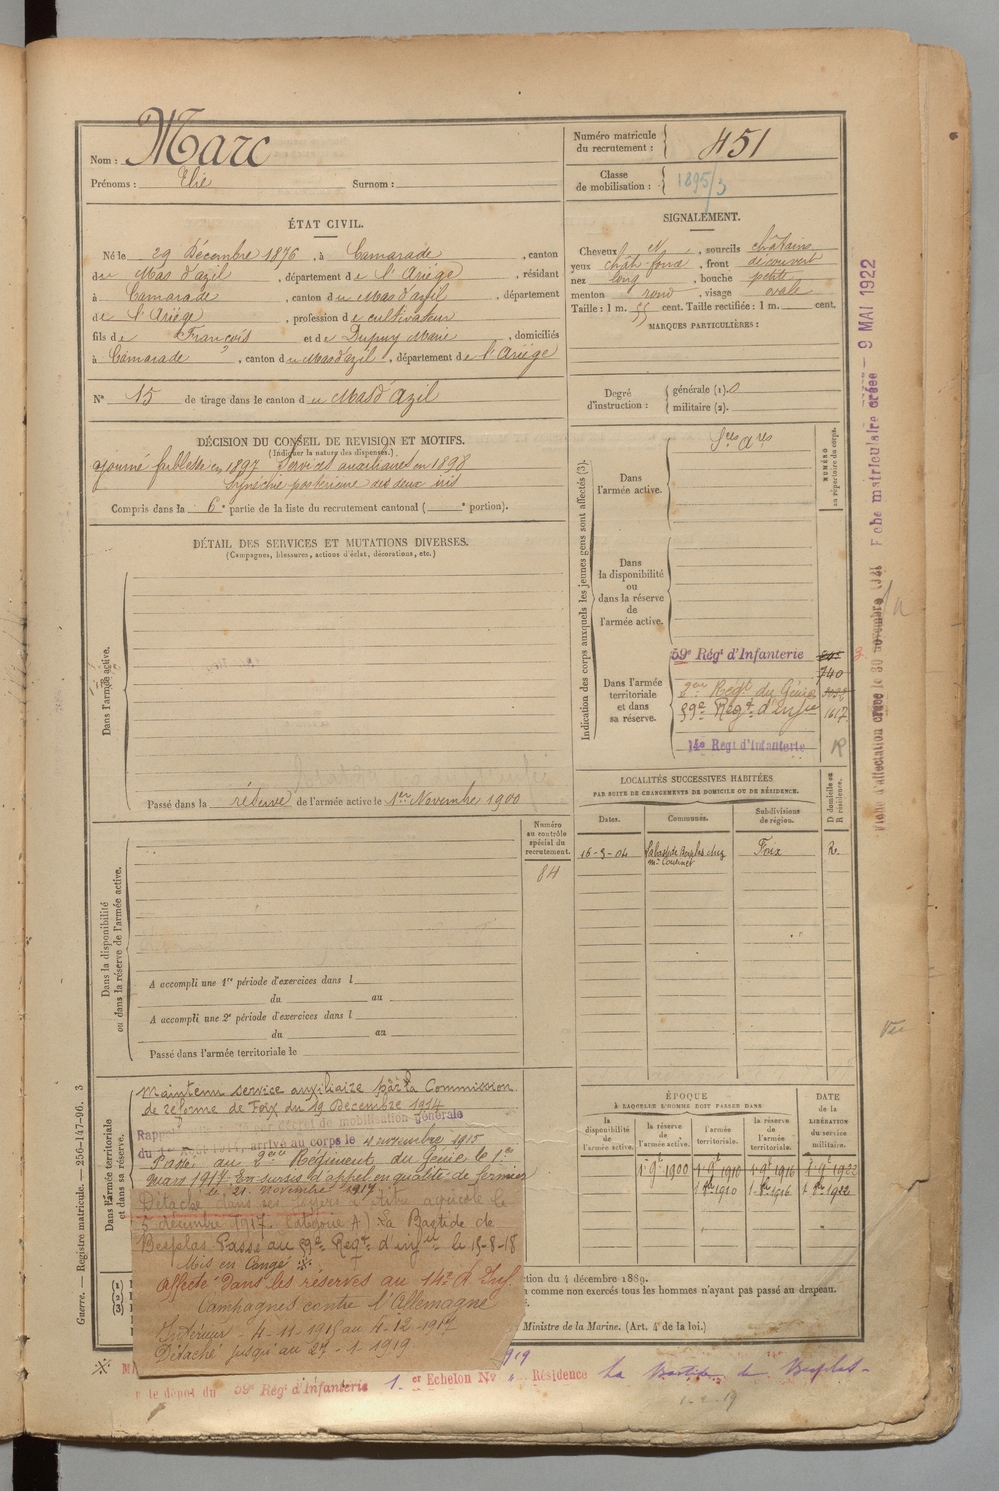 Nom : Marc
Prénoms : Elie Surnom :
Numéro matricule
du recrutement : 451
Classe
de mobilisation : 1895/3
ÉTAT CIVIL.
Né le 29 Décembre 1876, à Camarade, canton
du Mas d'azil, département de l'Ariège, résidant
à Camarade, canton du Mas d'azil, département
de l'Ariège, profession de cultivateur
fils de François et de Dupuy Marie, domiciliés
à Camarade, canton du Mas d'azil, département de l'Ariège
N° 15 de tirage dans le canton du Mas d'Azil
SIGNALEMENT.
Cheveux N, sourcils châtains
yeux chât-foncé, front découvert
nez long, bouche petite
menton rond, visage ovale
Taille : 1 m. 55 cent. Taille rectifiée : 1 m. cent.
MARQUES PARTICULIÈRES :
Degré
d'instruction :
générale (1). 0
militaire (2).
DÉCISION DU CONSEIL DE REVISION ET MOTIFS.
(Indiquer la nature des dispenses.)
ajourné faiblesse en 1897 Services auxiliaires en 1898
Synéchie postérieure des deux iris
Compris dans la 6e partie de la liste du recrutement cantonal ( e portion).
DÉTAIL DES SERVICES ET MUTATIONS DIVERSES.
(Campagnes, blessures, actions d'éclat, décorations, etc.)
Dans l'armée active.
Passé dans la réserve de l'armée active le 1er Novembre 1900
Indication des corps auxquels les jeunes gens sont affectés (3).
NUMÉRO
au répertoire du corps.
Dans
l'armée active.
Sces Ares
Dans
la disponibilité
ou
dans la réserve
de
l'armée active.
Dans l'armée
territoriale
et dans
sa réserve.
59e Régt d'Infanterie
740
2ème Régt du Génie
59e Régt d'Infie 1617
14e Régt d'Infanterie R
LOCALITÉS SUCCESSIVES HABITÉES
PAR SUITE DE CHANGEMENTS DE DOMICILE OU DE RÉSIDENCE.
Dates. Communes. Subdivisions
de région.
D domicile ou
R résidence.
16-5-04 Labastide Besplas chez Foix R.
Numéro
au contrôle
spécial du
recrutement.
84
Dans la disponibilité
ou dans la réserve de l'armée active.
A accompli une 1re période d'exercices dans l
du au
A accompli une 2e période d'exercices dans l
du au
Passé dans l'armée territoriale le
Dans l'armée territoriale
et dans sa réserve.
Maintenu service auxiliaire par la Commission
de réforme de Foix du 19 Décembre 1914
Rappelé par décret de mobilisation générale
arrivé au corps le 4 novembre 1915
Passé au 2ème Régiment du Génie le 1er
mars 1917. En sursis d'appel en qualité de fermier
le 21 novembre 1917
Détaché dans ses foyers à titre agricole le
5 décembre 1917 Catégorie A) La Bastide de
Besplas Passé au 59e Régt d'infie le 15-8-18
Mis en Congé ※
Affecté dans les réserves au 14e R. Inf.
Campagnes contre l'Allemagne
Intérieur - 4-11-1915 au 4-12-1917
Détaché jusqu'au 27-1-1919
ÉPOQUE
À LAQUELLE L'HOMME DOIT PASSER DANS
la
disponibilité
de
l'armée active.
la réserve
de
l'armée active.
l'armée
territoriale.
la réserve
de
l'armée
territoriale.
DATE
de la
LIBÉRATION
du service
militaire.
1900 1910 1916 1922
1910 1916 1922
ction du 4 décembre 1889.
comme non exercés tous les hommes n'ayant pas passé au drapeau.
Ministre de la Marine. (Art. 4 de la loi.)
le dépôt du 59e Régt d'Infanterie 1er Echelon No Résidence La Bastide de Besplas
Guerre. — Registre matricule. — 256-147-96. 3
Fiche matriculaire créée — 9 MAI 1922